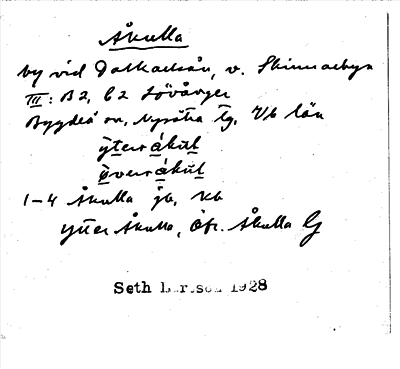 Åkulla
by vid Dalkarlsån, v. Skinnarbyn
III: B2, C2 Lövånger
Bygdeå sn, Nysätra tg, Vb län
ỳterákul
ö̀verákul
1–4 Åkulla jb, kb
Ytter Åkulla, Öfr. Åkulla G
Seth Larsson 1928